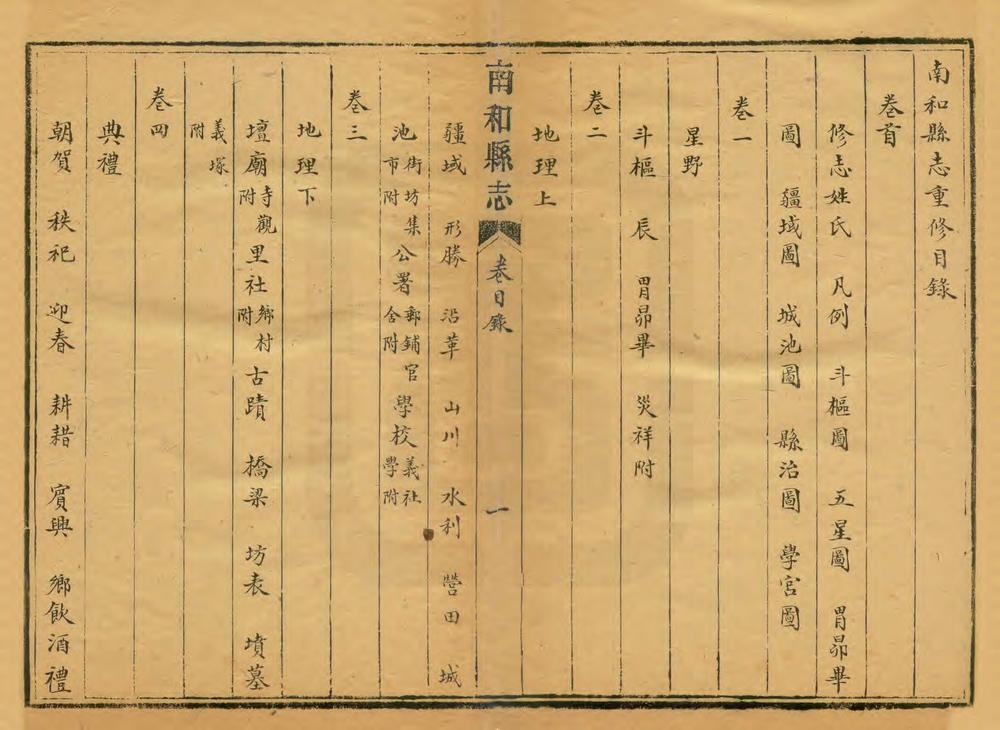 南和縣志重修目錄
卷首
修志姓氏 凡例 斗樞圖 五星圖 胃昴畢
圖 疆域圖 城池圖 縣治圖 學宮圖
卷一
星野
斗樞 辰 胃昴畢 災祥附
卷二
地理上
南和縣志 卷目錄 一
疆域 形勝 沿革 山川 水利 營田 城
池街坊集市附 公署郵鋪官舍附 學校義社學附
卷三
地理下
壇廟寺觀附 里社鄉村附 古蹟 橋梁 坊表 墳墓
義塚附
卷四
典禮
朝賀 秩祀 迎春 耕耤 賓興 鄉飲酒禮